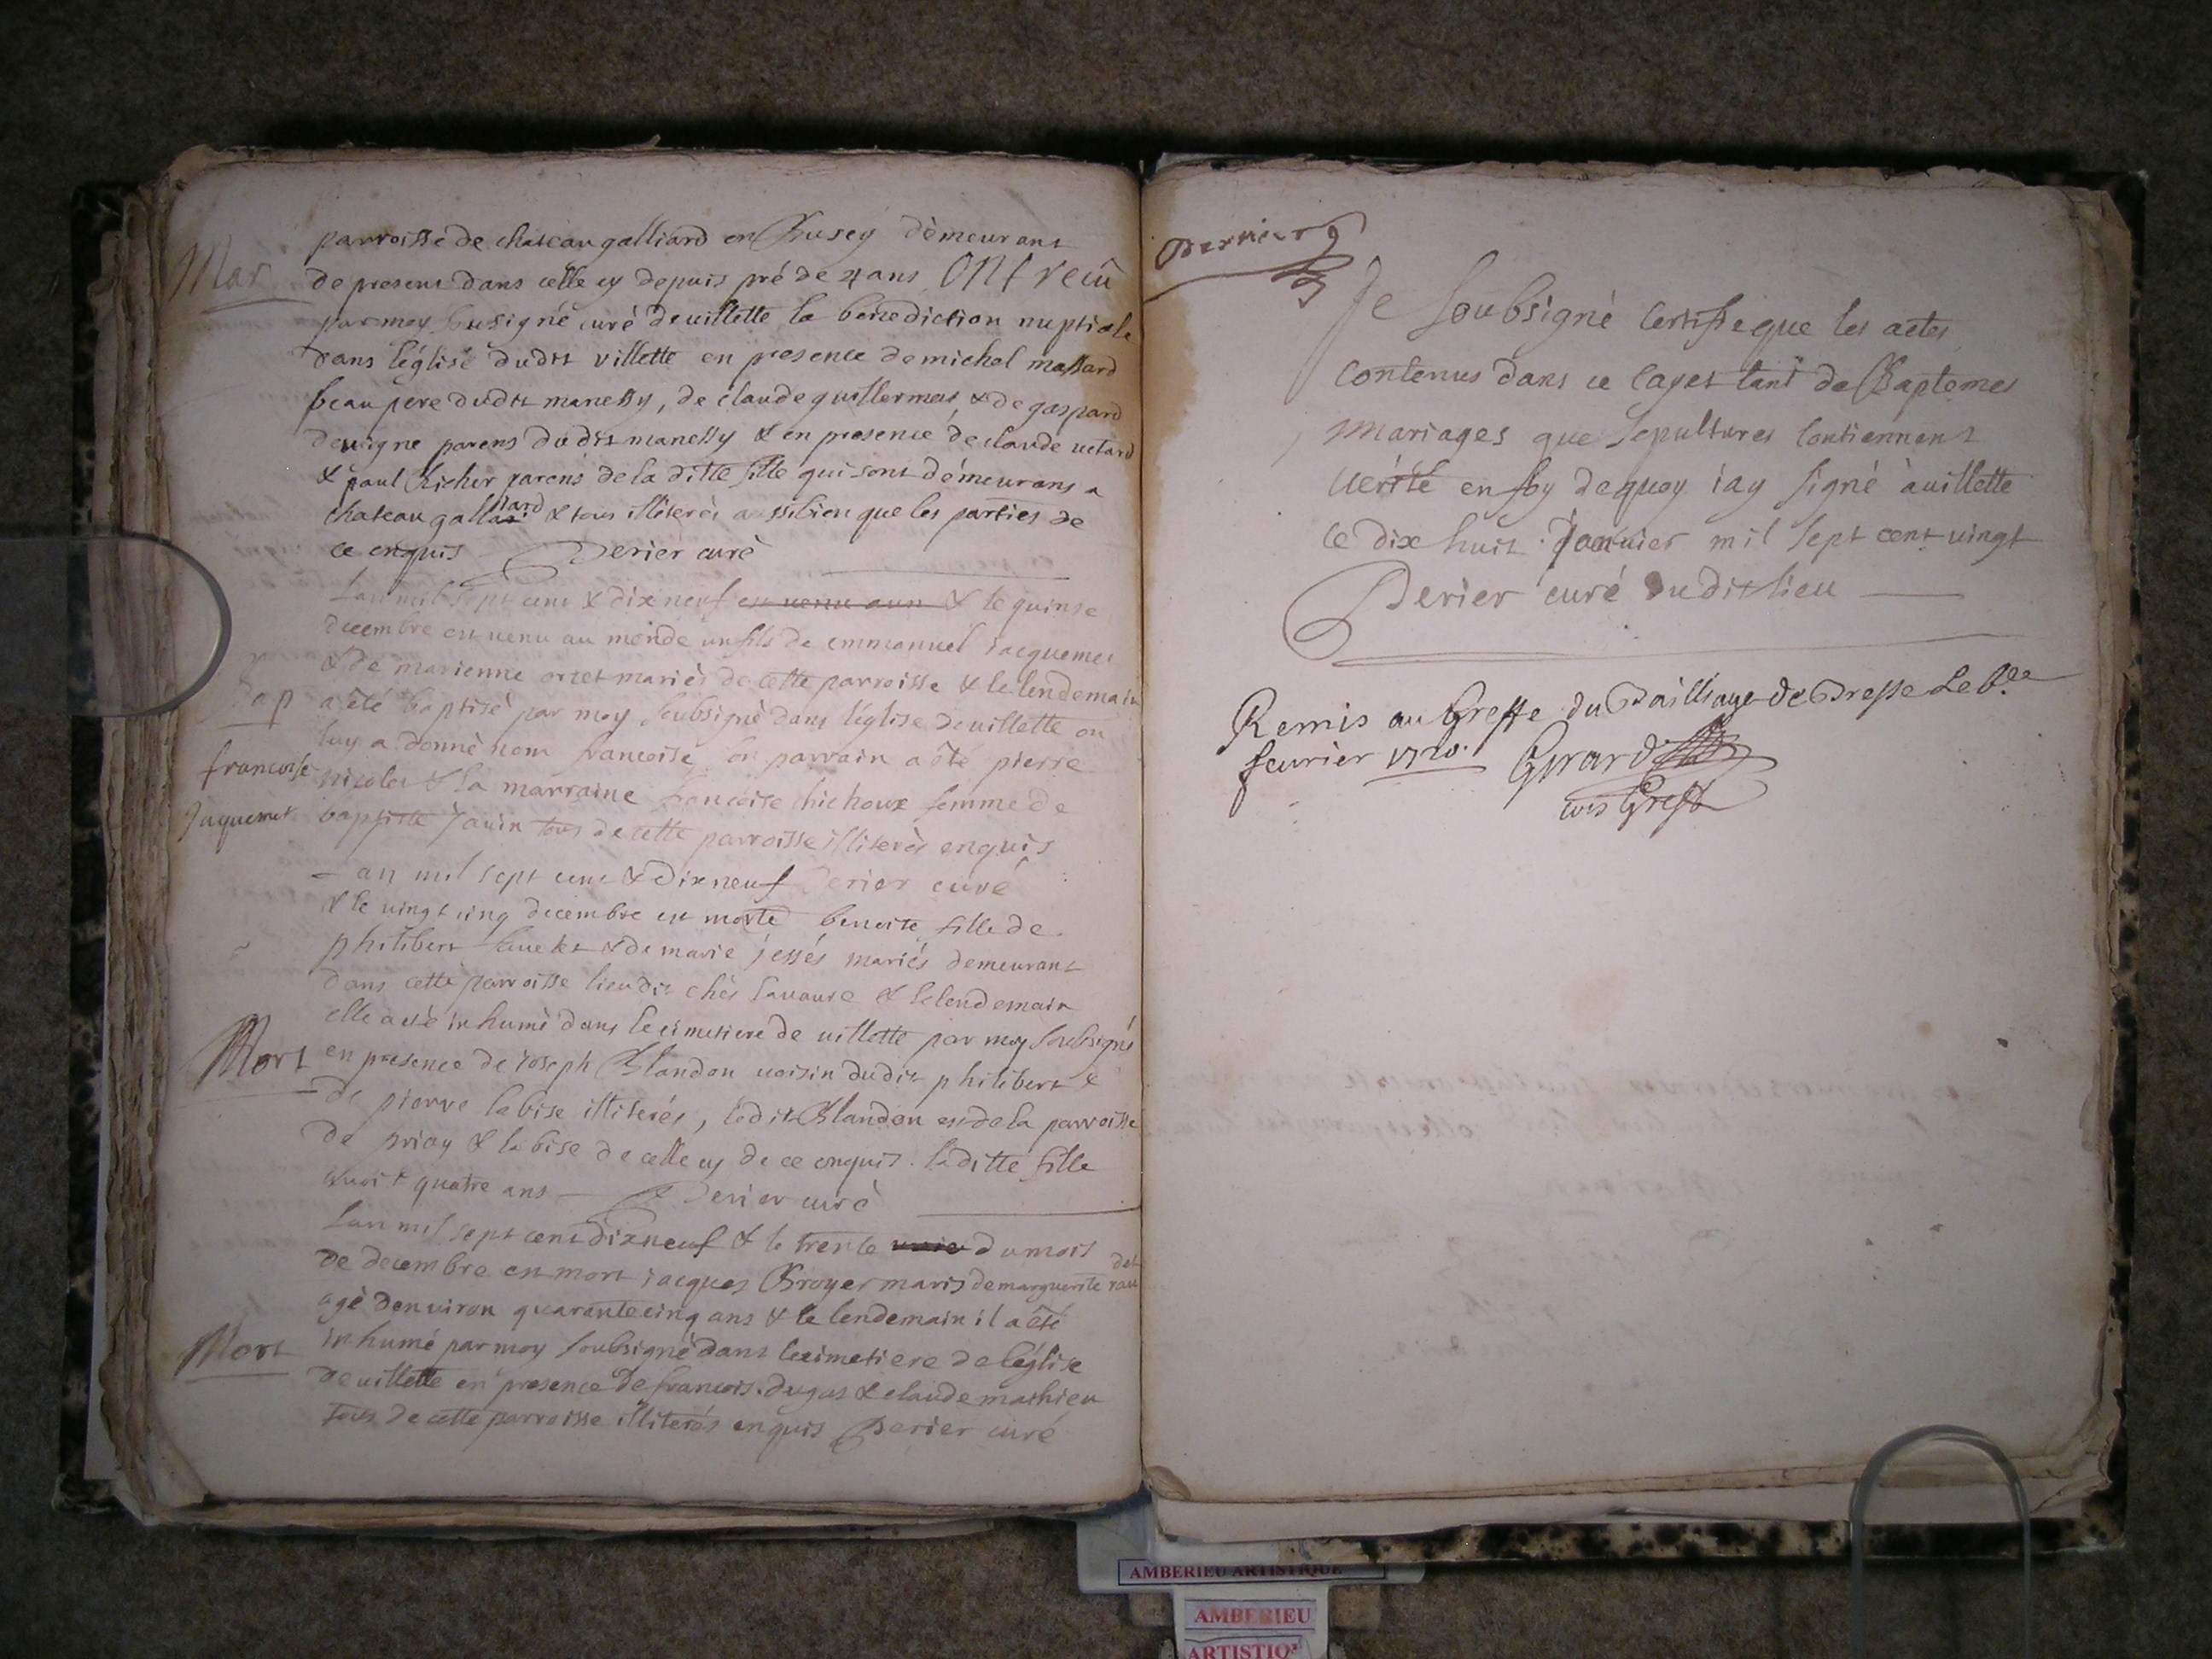 parroisse de chateau galliard en Busey dèmeurant
Mar de present dans celle cy depuis pré de 4 ans ont recû
par moy sousigné curé de uillette la benediction nuptiale
dans léglise dudit villette en presence de michel massard
beau pere dudit manessy, de claude guillermet, & de gaspard
deuigne parens dudit manessy & en presence de claude uetard
& paul Richer parens de la ditte fille qui sont démeurans a
chateau galliard & tous illiterés aussi bien que les parties de
ce enquis Derier curè
Lan mil sept cent & dix neuf est uenu aun & le quinse
decembre est uenu au monde un fils de emmanuel iacquemet
& de marienne ortet mariès de cette parroisse & le lendemain
Bap a été baptisé par moy soubsigné dans léglise de uillette on
luy a donnè nom francoise, son parrain a ôté pierre
francoise nicolet & la marraine francoise chichoux femme de
Jaquemet baptiste Janin tous de cette parroisse illiterès enquis
Lan mil sept cent & dix neuf Derier curé
& le uingt cinq decembre est morte benoite fille de
philibert & de marie jessés mariés demeurant
dans cette parroisse lieu dit chés lauaure & le lendemain
elle a eté inhumè dans le cimetiere de uillette par moy soubsigné
Mort en presence de ioseph Blandon uoisin dudit philibert &
de pierre labise illiterés, ledit Blandon est de la parroisse
de priay & labise de celle cy de ce enquis. laditte fille
auoit quatre ans Derier curè
Lan mil sept cent dix neuf & le trente du mois
de decembre est mort iacques Broyer maris de marguerite
agè denuiron quarante cinq ans & le lendemain il a êté
Mort inhumé par moy soubsigné dans le cimetiere de léglise
de uillette en presence de francois dugas & claude mathieu
tous de cette parroisse illiterés enquis Derier curé
Dernier
Je soubsignè certifie que les actes
contenus dans ce cayet tant de Baptemes
mariages que sepultures contiennent
uérité en foy dequoy iay signé à uillette
le dix huit januier mil sept cent uingt
Derier curé dudit lieu
Remis au Greffe du Bailliage de Bresse le
feurier 1720. Girard
com Greff
AMBERIEU ARTISTIQUE
AMBERIEU
ARTISTIQ